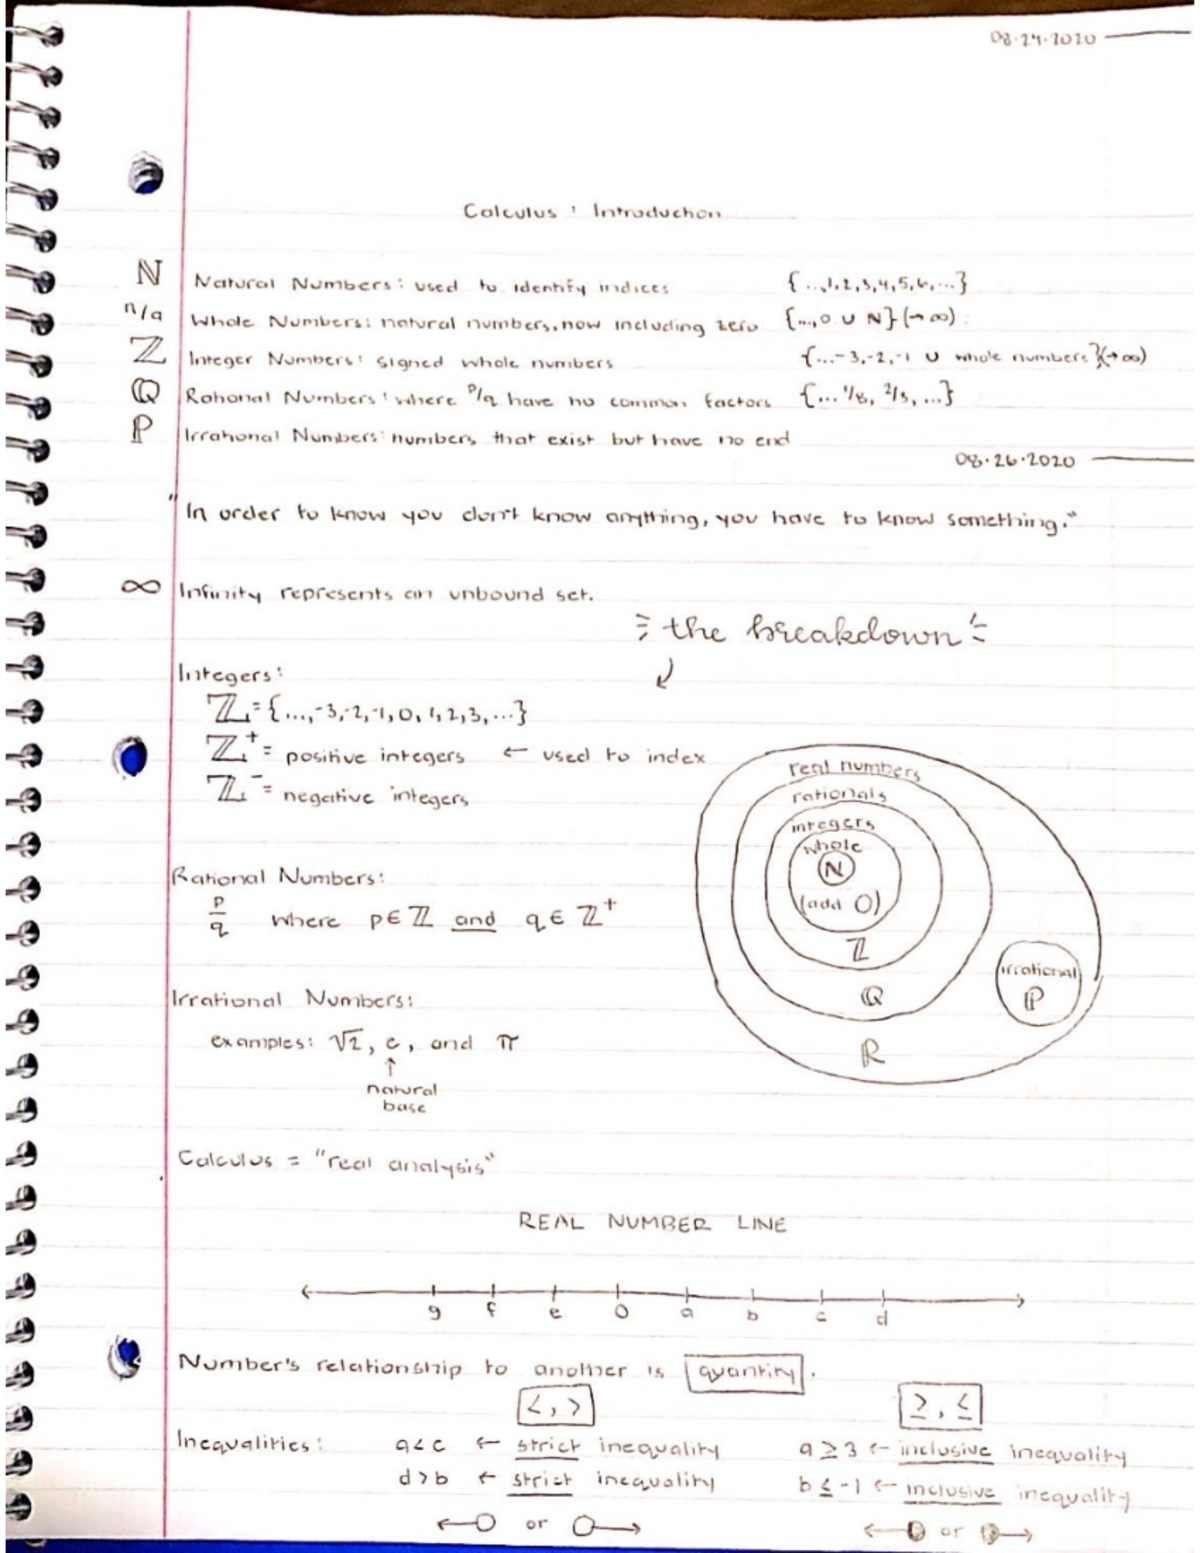 08·24·2020
Calculus : Introduction
ℕ Natural Numbers: used to identify indices {...,1,2,3,4,5,6,...}
n/a Whole Numbers: natural numbers, now including zero {...,0 ∪ ℕ}(→∞)
ℤ Integer Numbers: signed whole numbers {...-3,-2,-1 ∪ whole numbers}(→∞)
ℚ Rational Numbers: where p/q have no common factors {... 1/8, 2/3, ...}
ℙ Irrational Numbers: numbers that exist but have no end
08·26·2020
"In order to know you don't know anything, you have to know something."
∞ Infinity represents an unbound set.
the breakdown
Integers:
ℤ = {...,-3,-2,-1,0,1,2,3,...}
ℤ⁺ = positive integers ← used to index
ℤ⁻ = negative integers
real numbers
rationals
integers
whole
ℕ
(add 0)
ℤ
ℚ
ℝ
irrational
ℙ
Rational Numbers:
p/q where p∈ℤ and q∈ℤ⁺
Irrational Numbers:
examples: √2, e, and π
↑
natural
base
Calculus = "real analysis"
REAL NUMBER LINE
g f e 0 a b c d
Number's relationship to another is quantity.
<, > ≥, ≤
Inequalities: a<c ← strict inequality a≥3 ← inclusive inequality
d>b ← strict inequality b≤-1 ← inclusive inequality
←○ or ○→ ←● or ●→